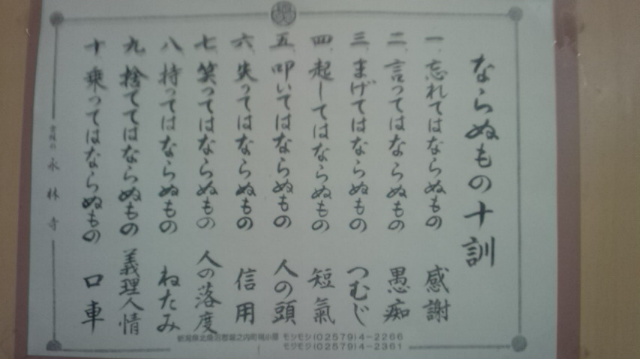 ならぬもの十訓
一、忘れてはならぬもの 感謝
二、言ってはならぬもの 愚痴
三、まげてはならぬもの つむじ
四、起してはならぬもの 短氣
五、叩いてはならぬもの 人の頭
六、失ってはならぬもの 信用
七、笑ってはならぬもの 人の落度
八、持ってはならぬもの ねたみ
九、捨ててはならぬもの 義理人情
十、乗ってはならぬもの 口車
永林寺
モシモシ(02579)4-2266
モシモシ(02579)4-2361